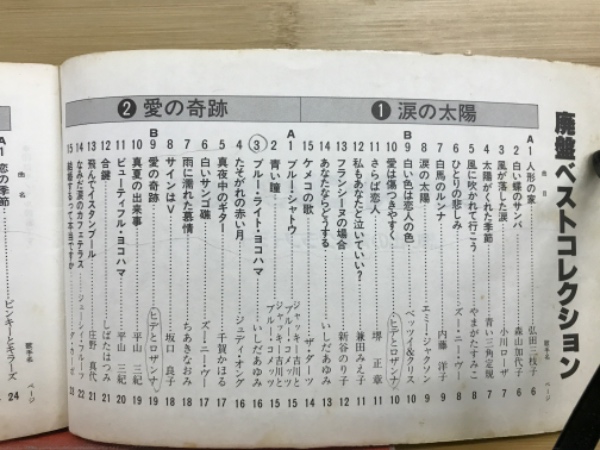 廃盤ベストコレクション
❶ 涙の太陽
曲名 歌手名 ページ
A1 人形の家……弘田三枝子 6
2 白い蝶のサンバ……森山加代子 6
3 風が落した涙……小川ローザ 7
4 太陽がくれた季節……青い三角定規 7
5 風に吹かれて行こう……やまがたすみこ 8
6 ひとりの悲しみ……ズー・ニー・ヴー 8
7 白馬のルンナ……内藤洋子 9
8 涙の太陽……エミー・ジャクソン 9
B
9 白い色は恋人の色……ベッツイ&クリス 10
10 愛は傷つきやすく……ヒデとロザンナ 10
11 さらば恋人……堺正章 11
12 私もあなたと泣いていい?……兼田みえ子
13 フランシーヌの場合……新谷のり子
14 あなたならどうする……いしだあゆみ
15 ケメコの歌……ザ・ダーツ
❷ 愛の奇跡
A
1 ブルー・シャトウ……ジャッキー吉川とブルー・コメッツ
2 青い瞳……ジャッキー吉川とブルー・コメッツ
3 ブルー・ライト・ヨコハマ……いしだあゆみ 16
4 たそがれの赤い月……ジュディ・オング 16
5 真夜中のギター……千賀かほる 17
6 白いサンゴ礁……ズー・ニー・ヴー 17
7 雨に濡れた慕情……ちあきなおみ 18
8 サインはV……坂口良子 18
B
9 愛の奇跡……ヒデとロザンナ 19
10 真夏の出来事……平山三紀 19
11 ビューティフル・ヨコハマ……平山三紀 20
12 合鍵……しばたはつみ
13 飛んでイスタンブール……庄野真代 21
14 なみだ涙のカフェテラス……ジェーン
15 結婚するって本当ですか
曲名 歌手名 ページ
A1 恋の季節……ピンキーとキラーズ 24